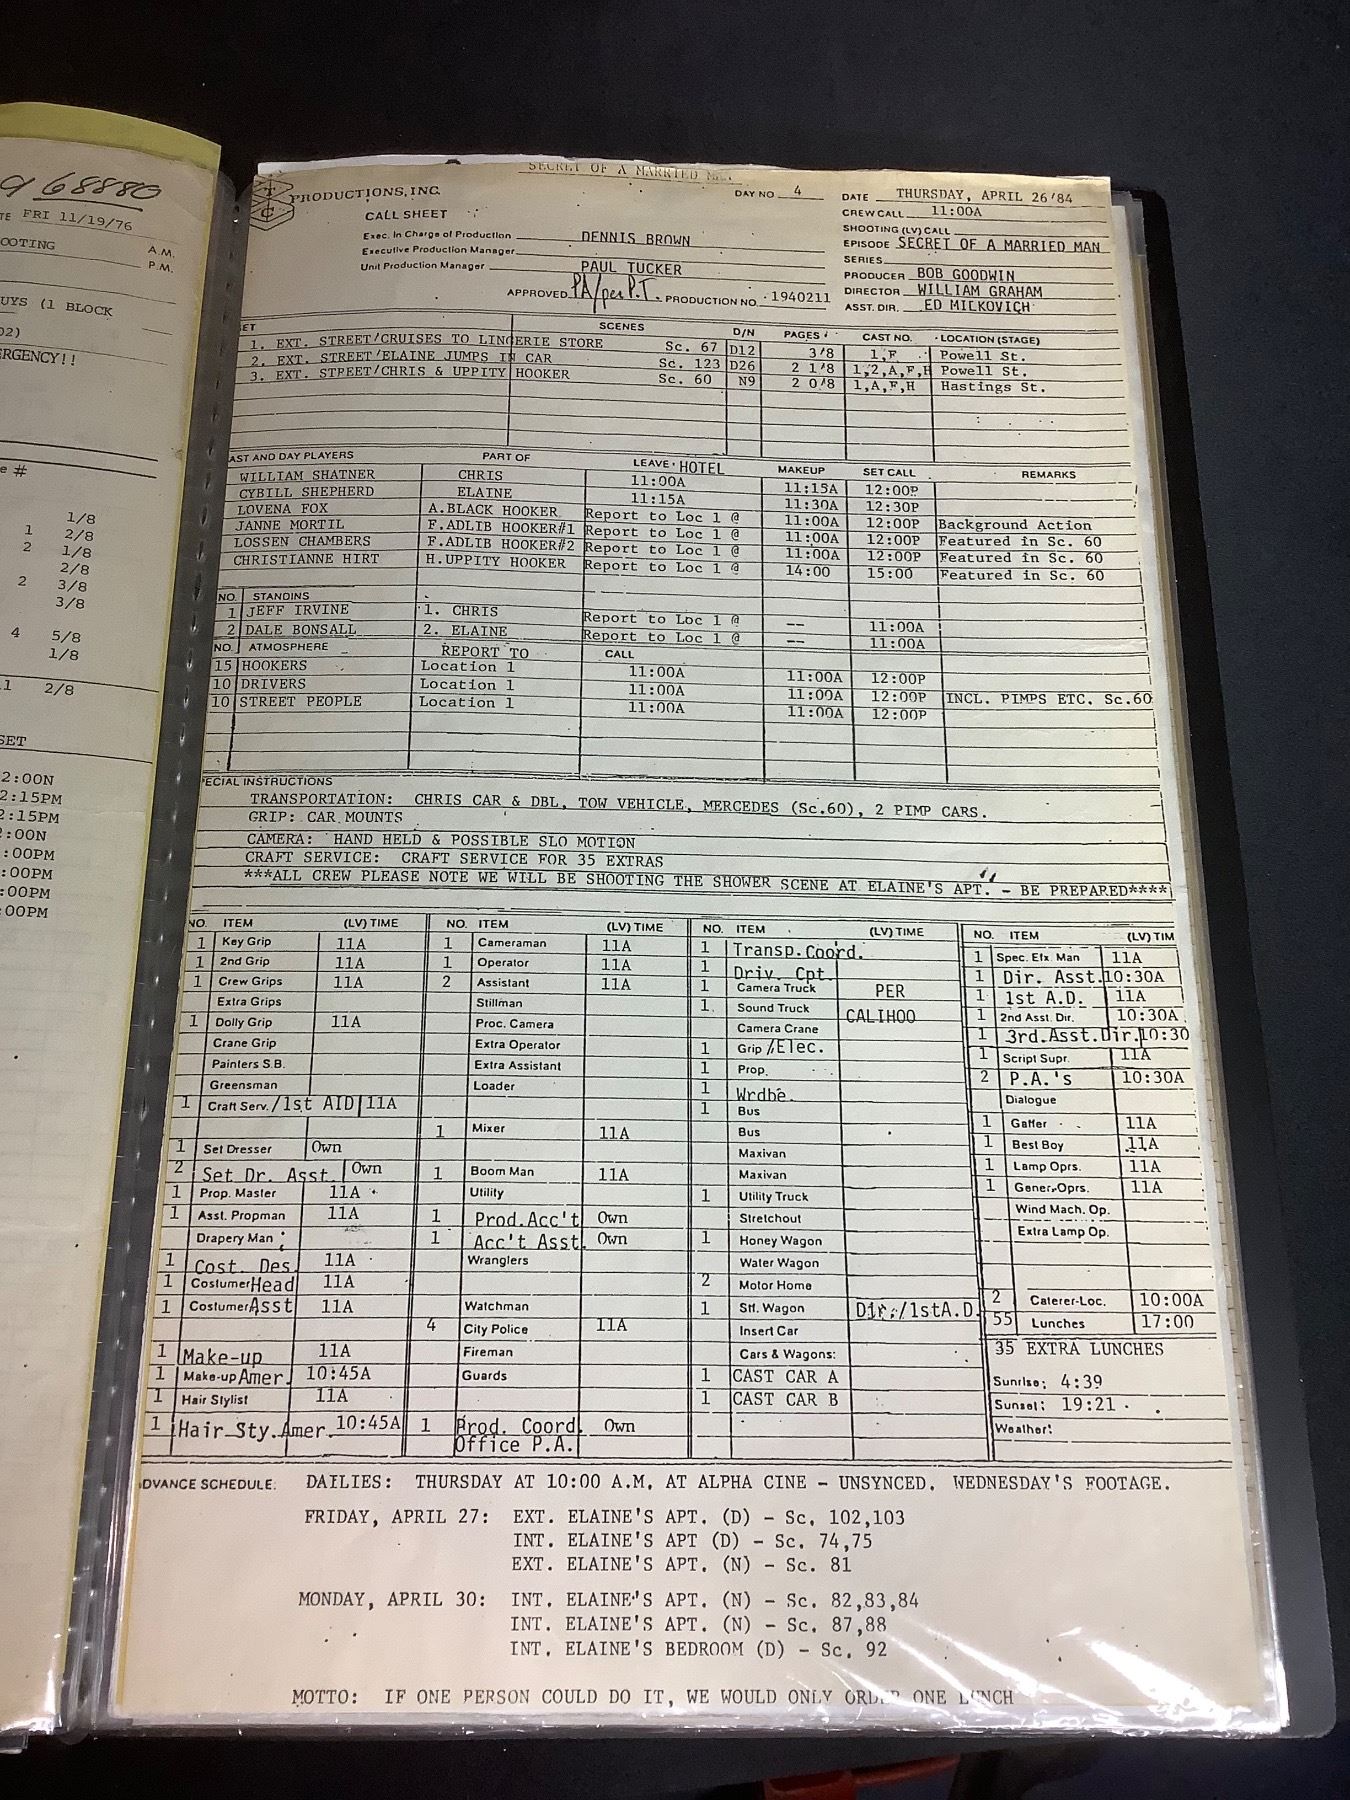 68880
FRI 11/19/76
OOTING
A.M.
P.M.
UYS (1 BLOCK
02)
ERGENCY!!
e #
1/8
1 2/8
2 1/8
2/8
2 3/8
3/8
4 5/8
1/8
1 2/8
SET
2:00N
2:15PM
2:15PM
:00N
:00PM
:00PM
:00PM
:00PM
SECRET OF A MARRIED MAN
T C PRODUCTIONS, INC.
DAY NO. 4
DATE THURSDAY, APRIL 26'84
CALL SHEET
CREW CALL 11:00A
SHOOTING (LV) CALL
Exec. In Charge of Production DENNIS BROWN
EPISODE SECRET OF A MARRIED MAN
Executive Production Manager
SERIES
Unit Production Manager PAUL TUCKER
PRODUCER BOB GOODWIN
DIRECTOR WILLIAM GRAHAM
APPROVED PA/per P.T. PRODUCTION NO. 1940211
ASST. DIR. ED MILKOVICH
ET SCENES D/N PAGES CAST NO. LOCATION (STAGE)
1. EXT. STREET/CRUISES TO LINGERIE STORE Sc. 67 D12 3/8 1,F Powell St.
2. EXT. STREET/ELAINE JUMPS IN CAR Sc. 123 D26 2 1/8 1,2,A,F,H Powell St.
3. EXT. STREET/CHRIS & UPPITY HOOKER Sc. 60 N9 2 0/8 1,A,F,H Hastings St.
AST AND DAY PLAYERS PART OF LEAVE HOTEL MAKEUP SET CALL REMARKS
WILLIAM SHATNER CHRIS 11:00A 11:15A 12:00P
CYBILL SHEPHERD ELAINE 11:15A 11:30A 12:30P
LOVENA FOX A.BLACK HOOKER Report to Loc 1 @ 11:00A 12:00P Background Action
JANNE MORTIL F.ADLIB HOOKER#1 Report to Loc 1 @ 11:00A 12:00P Featured in Sc. 60
LOSSEN CHAMBERS F.ADLIB HOOKER#2 Report to Loc 1 @ 11:00A 12:00P Featured in Sc. 60
CHRISTIANNE HIRT H.UPPITY HOOKER Report to Loc 1 @ 14:00 15:00 Featured in Sc. 60
NO. STANDINS
1 JEFF IRVINE 1. CHRIS Report to Loc 1 @ -- 11:00A
2 DALE BONSALL 2. ELAINE Report to Loc 1 @ -- 11:00A
NO. ATMOSPHERE REPORT TO CALL
15 HOOKERS Location 1 11:00A 11:00A 12:00P
10 DRIVERS Location 1 11:00A 11:00A 12:00P INCL. PIMPS ETC. Sc.60
10 STREET PEOPLE Location 1 11:00A 11:00A 12:00P
ECIAL INSTRUCTIONS
TRANSPORTATION: CHRIS CAR & DBL, TOW VEHICLE, MERCEDES (Sc.60), 2 PIMP CARS.
GRIP: CAR MOUNTS
CAMERA: HAND HELD & POSSIBLE SLO MOTION
CRAFT SERVICE: CRAFT SERVICE FOR 35 EXTRAS
***ALL CREW PLEASE NOTE WE WILL BE SHOOTING THE SHOWER SCENE AT ELAINE'S APT. - BE PREPARED****
NO. ITEM (LV) TIME
1 Key Grip 11A
1 2nd Grip 11A
1 Crew Grips 11A
Extra Grips
1 Dolly Grip 11A
Crane Grip
Painters S.B.
Greensman
1 Craft Serv./1st AID 11A
1 Set Dresser Own
2 Set Dr. Asst. Own
1 Prop. Master 11A
1 Asst. Propman 11A
Drapery Man
1 Cost. Des. 11A
1 Costumer Head 11A
1 Costumer Asst 11A
1 Make-up 11A
1 Make-up Amer. 10:45A
1 Hair Stylist 11A
1 Hair Sty. Amer. 10:45A
NO. ITEM (LV) TIME
1 Cameraman 11A
1 Operator 11A
2 Assistant 11A
Stillman
Proc. Camera
Extra Operator
Extra Assistant
Loader
1 Mixer 11A
1 Boom Man 11A
Utility
1 Prod.Acc't Own
1 Acc't Asst. Own
Wranglers
Watchman
4 City Police 11A
Fireman
Guards
1 Prod. Coord. Own
Office P.A.
NO. ITEM (LV) TIME
1 Transp.Coord.
1 Driv. Cpt
1 Camera Truck PER
1 Sound Truck CALIHOO
Camera Crane
1 Grip /Elec.
1 Prop.
1 Wrdbe.
1 Bus
Bus
Maxivan
Maxivan
1 Utility Truck
Stretchout
1 Honey Wagon
Water Wagon
2 Motor Home
1 Stf. Wagon Dir./1stA.D.
Insert Car
Cars & Wagons:
1 CAST CAR A
1 CAST CAR B
NO. ITEM (LV) TIM
1 Spec. Efx. Man 11A
1 Dir. Asst. 10:30A
1 1st A.D. 11A
1 2nd Asst. Dir. 10:30A
1 3rd.Asst.Dir. 10:30
1 Script Supr. 11A
2 P.A.'s 10:30A
Dialogue
1 Gaffer 11A
1 Best Boy 11A
1 Lamp Oprs. 11A
1 Gener. Oprs. 11A
Wind Mach. Op.
Extra Lamp Op.
2 Caterer-Loc. 10:00A
55 Lunches 17:00
35 EXTRA LUNCHES
Sunrise: 4:39
Sunset: 19:21
Weather:
DVANCE SCHEDULE: DAILIES: THURSDAY AT 10:00 A.M. AT ALPHA CINE - UNSYNCED. WEDNESDAY'S FOOTAGE.
FRIDAY, APRIL 27: EXT. ELAINE'S APT. (D) - Sc. 102,103
INT. ELAINE'S APT (D) - Sc. 74,75
EXT. ELAINE'S APT. (N) - Sc. 81
MONDAY, APRIL 30: INT. ELAINE'S APT. (N) - Sc. 82,83,84
INT. ELAINE'S APT. (N) - Sc. 87,88
INT. ELAINE'S BEDROOM (D) - Sc. 92
MOTTO: IF ONE PERSON COULD DO IT, WE WOULD ONLY ORDER ONE LUNCH